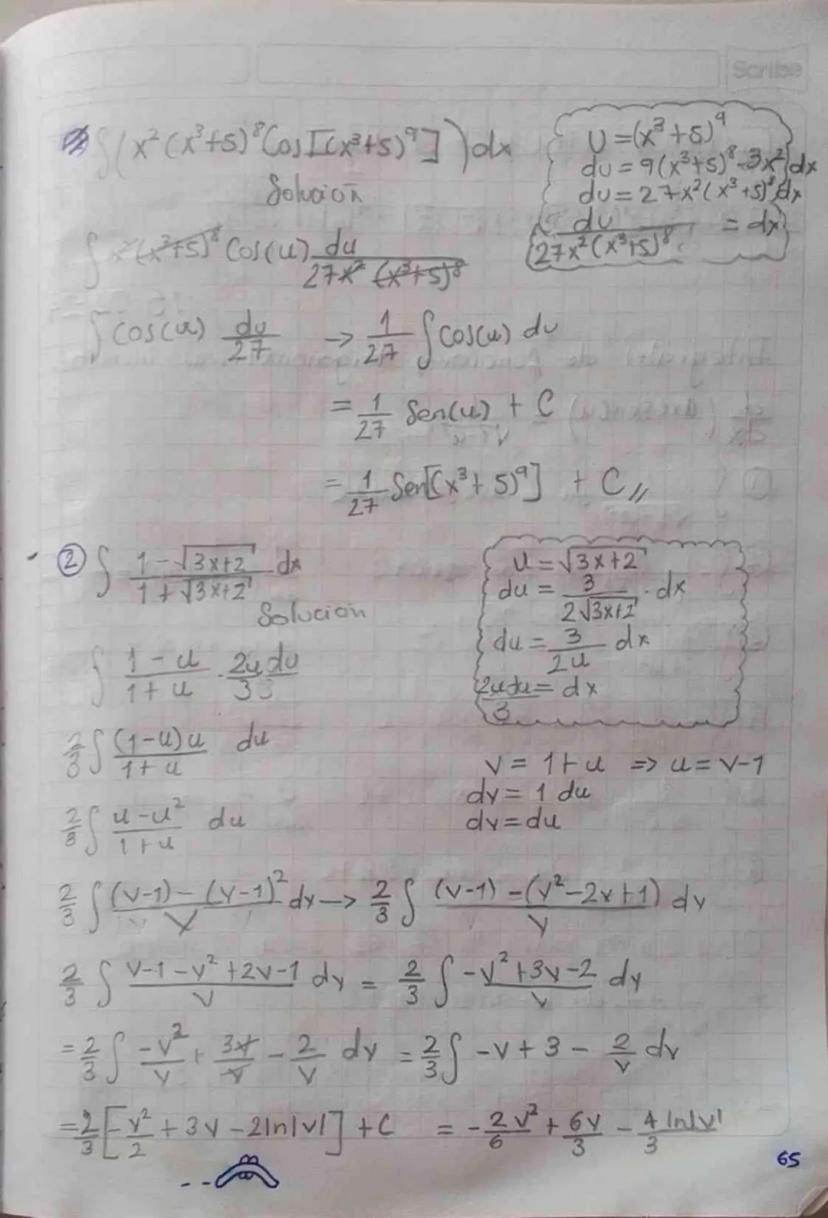 Scribe
∫(x²(x³+5)⁸Cos[(x³+5)⁹])dx
Solución
U = (x³+5)⁹
du = 9(x³+5)⁸ 3x² dx
du = 27x²(x³+5)⁸dx
du/(27x²(x³+5)⁸) = dx
∫x²(x³+5)⁸ Cos(u) du/(27x² (x³+5)⁸)
∫cos(u) du/27 → 1/27 ∫cos(u) du
= 1/27 Sen(u) + C
= 1/27 Sen[(x³+5)⁹] + C //
② ∫ (1-√(3x+2))/(1+√(3x+2)) dx
Solución
u = √(3x+2)
du = 3/(2√(3x+2)) · dx
du = 3/(2u) dx
2udu/3 = dx
∫ (1-u)/(1+u) · 2udu/3
2/3 ∫ (1-u)u/(1+u) du
2/3 ∫ (u-u²)/(1+u) du
v = 1+u ⇒ u = v-1
dv = 1 du
dv = du
2/3 ∫ ((v-1)-(v-1)²)/v dv → 2/3 ∫ ((v-1)-(v²-2v+1))/v dv
2/3 ∫ (v-1-v²+2v-1)/v dv = 2/3 ∫ (-v²+3v-2)/v dv
= 2/3 ∫ -v²/v + 3v/v - 2/v dv = 2/3 ∫ -v+3 - 2/v dv
= 2/3 [-v²/2 + 3v - 2ln|v|] + C = -2v²/6 + 6v/3 - 4/3 ln|v|
65